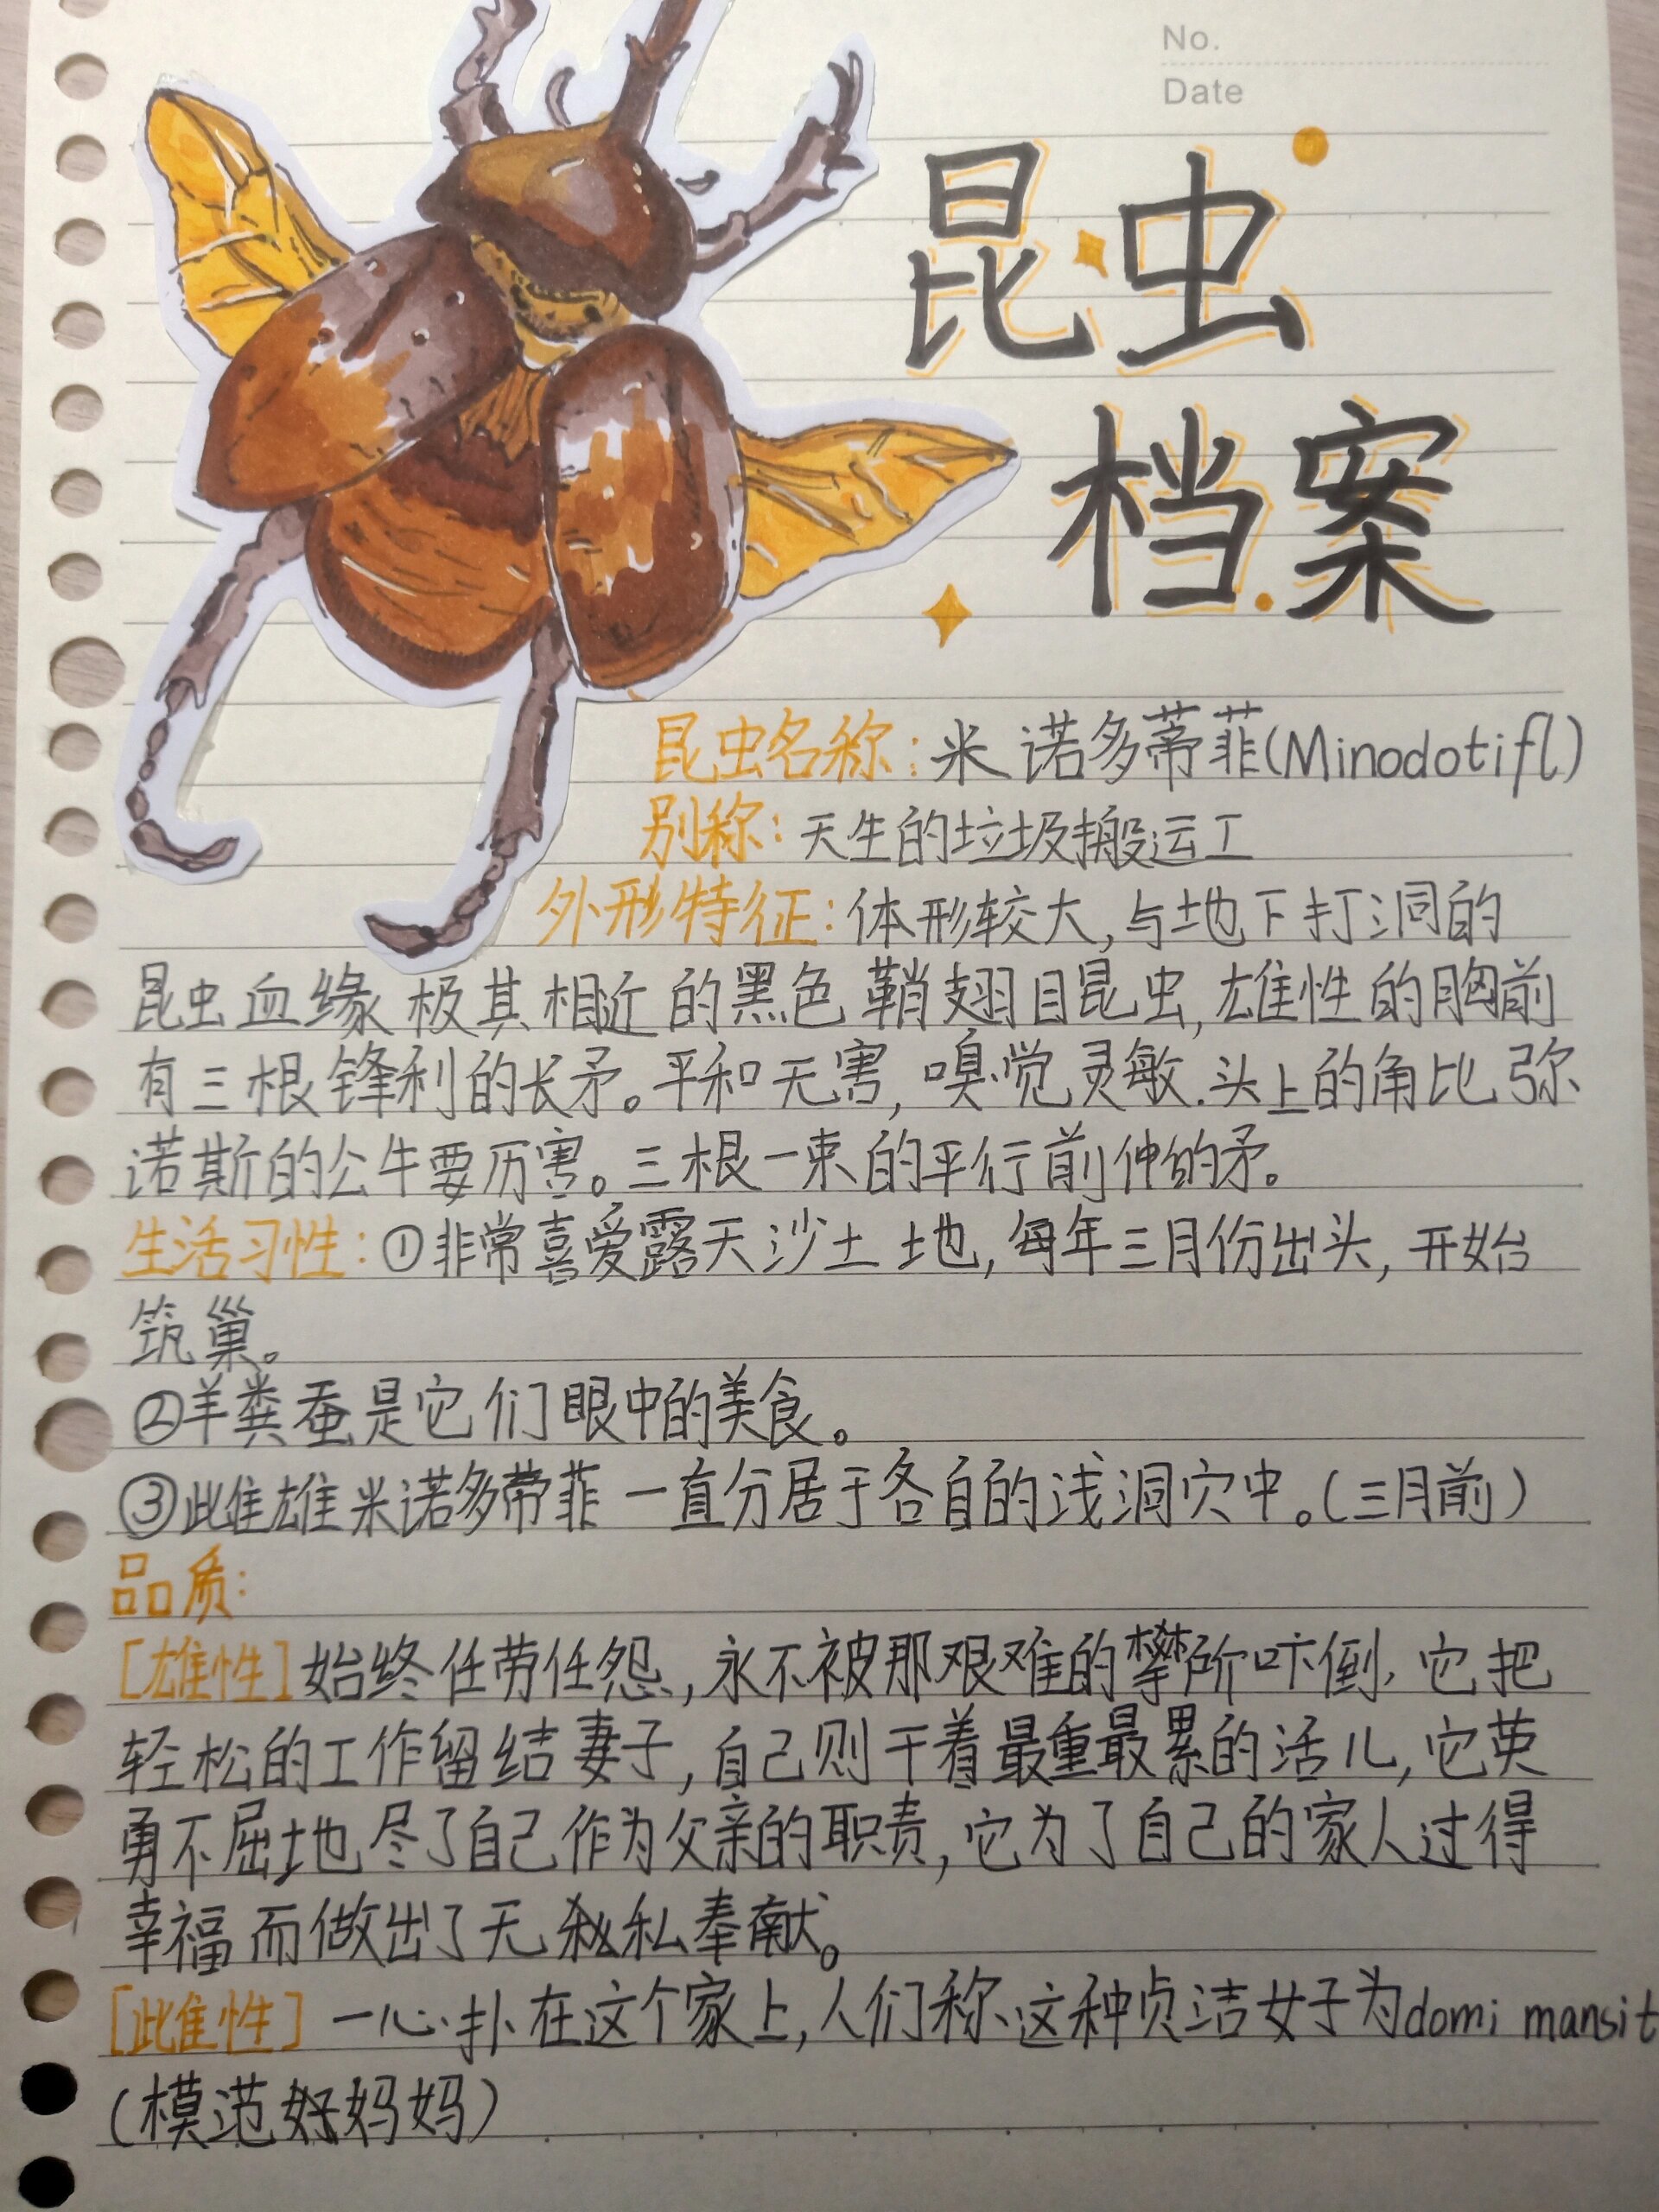 No.
Date
昆虫
档案
昆虫名称：米诺多蒂菲(Minodotifl)
别称：天生的垃圾搬运工
外形特征：体形较大，与地下打洞的
昆虫血缘极其相近的黑色鞘翅目昆虫，雄性的胸前
有三根锋利的长矛。平和无害，嗅觉灵敏.头上的角比弥
诺斯的公牛要厉害。三根一束的平行前伸的矛。
生活习性：①非常喜爱露天沙土地，每年三月份出头，开始
筑巢。
②羊粪蚕是它们眼中的美食。
③雌雄米诺多蒂菲一直分居于各自的浅洞穴中。(三月前)
品质：
[雄性]始终任劳任怨，永不被那艰难的攀所吓倒，它把
轻松的工作留结妻子，自己则干着最重最累的活儿，它英
勇不屈地尽了自己作为父亲的职责，它为了自己的家人过得
幸福而做出了无私奉献。
[雌性]一心扑在这个家上，人们称这种贞洁女子为domi mansit
(模范好妈妈)